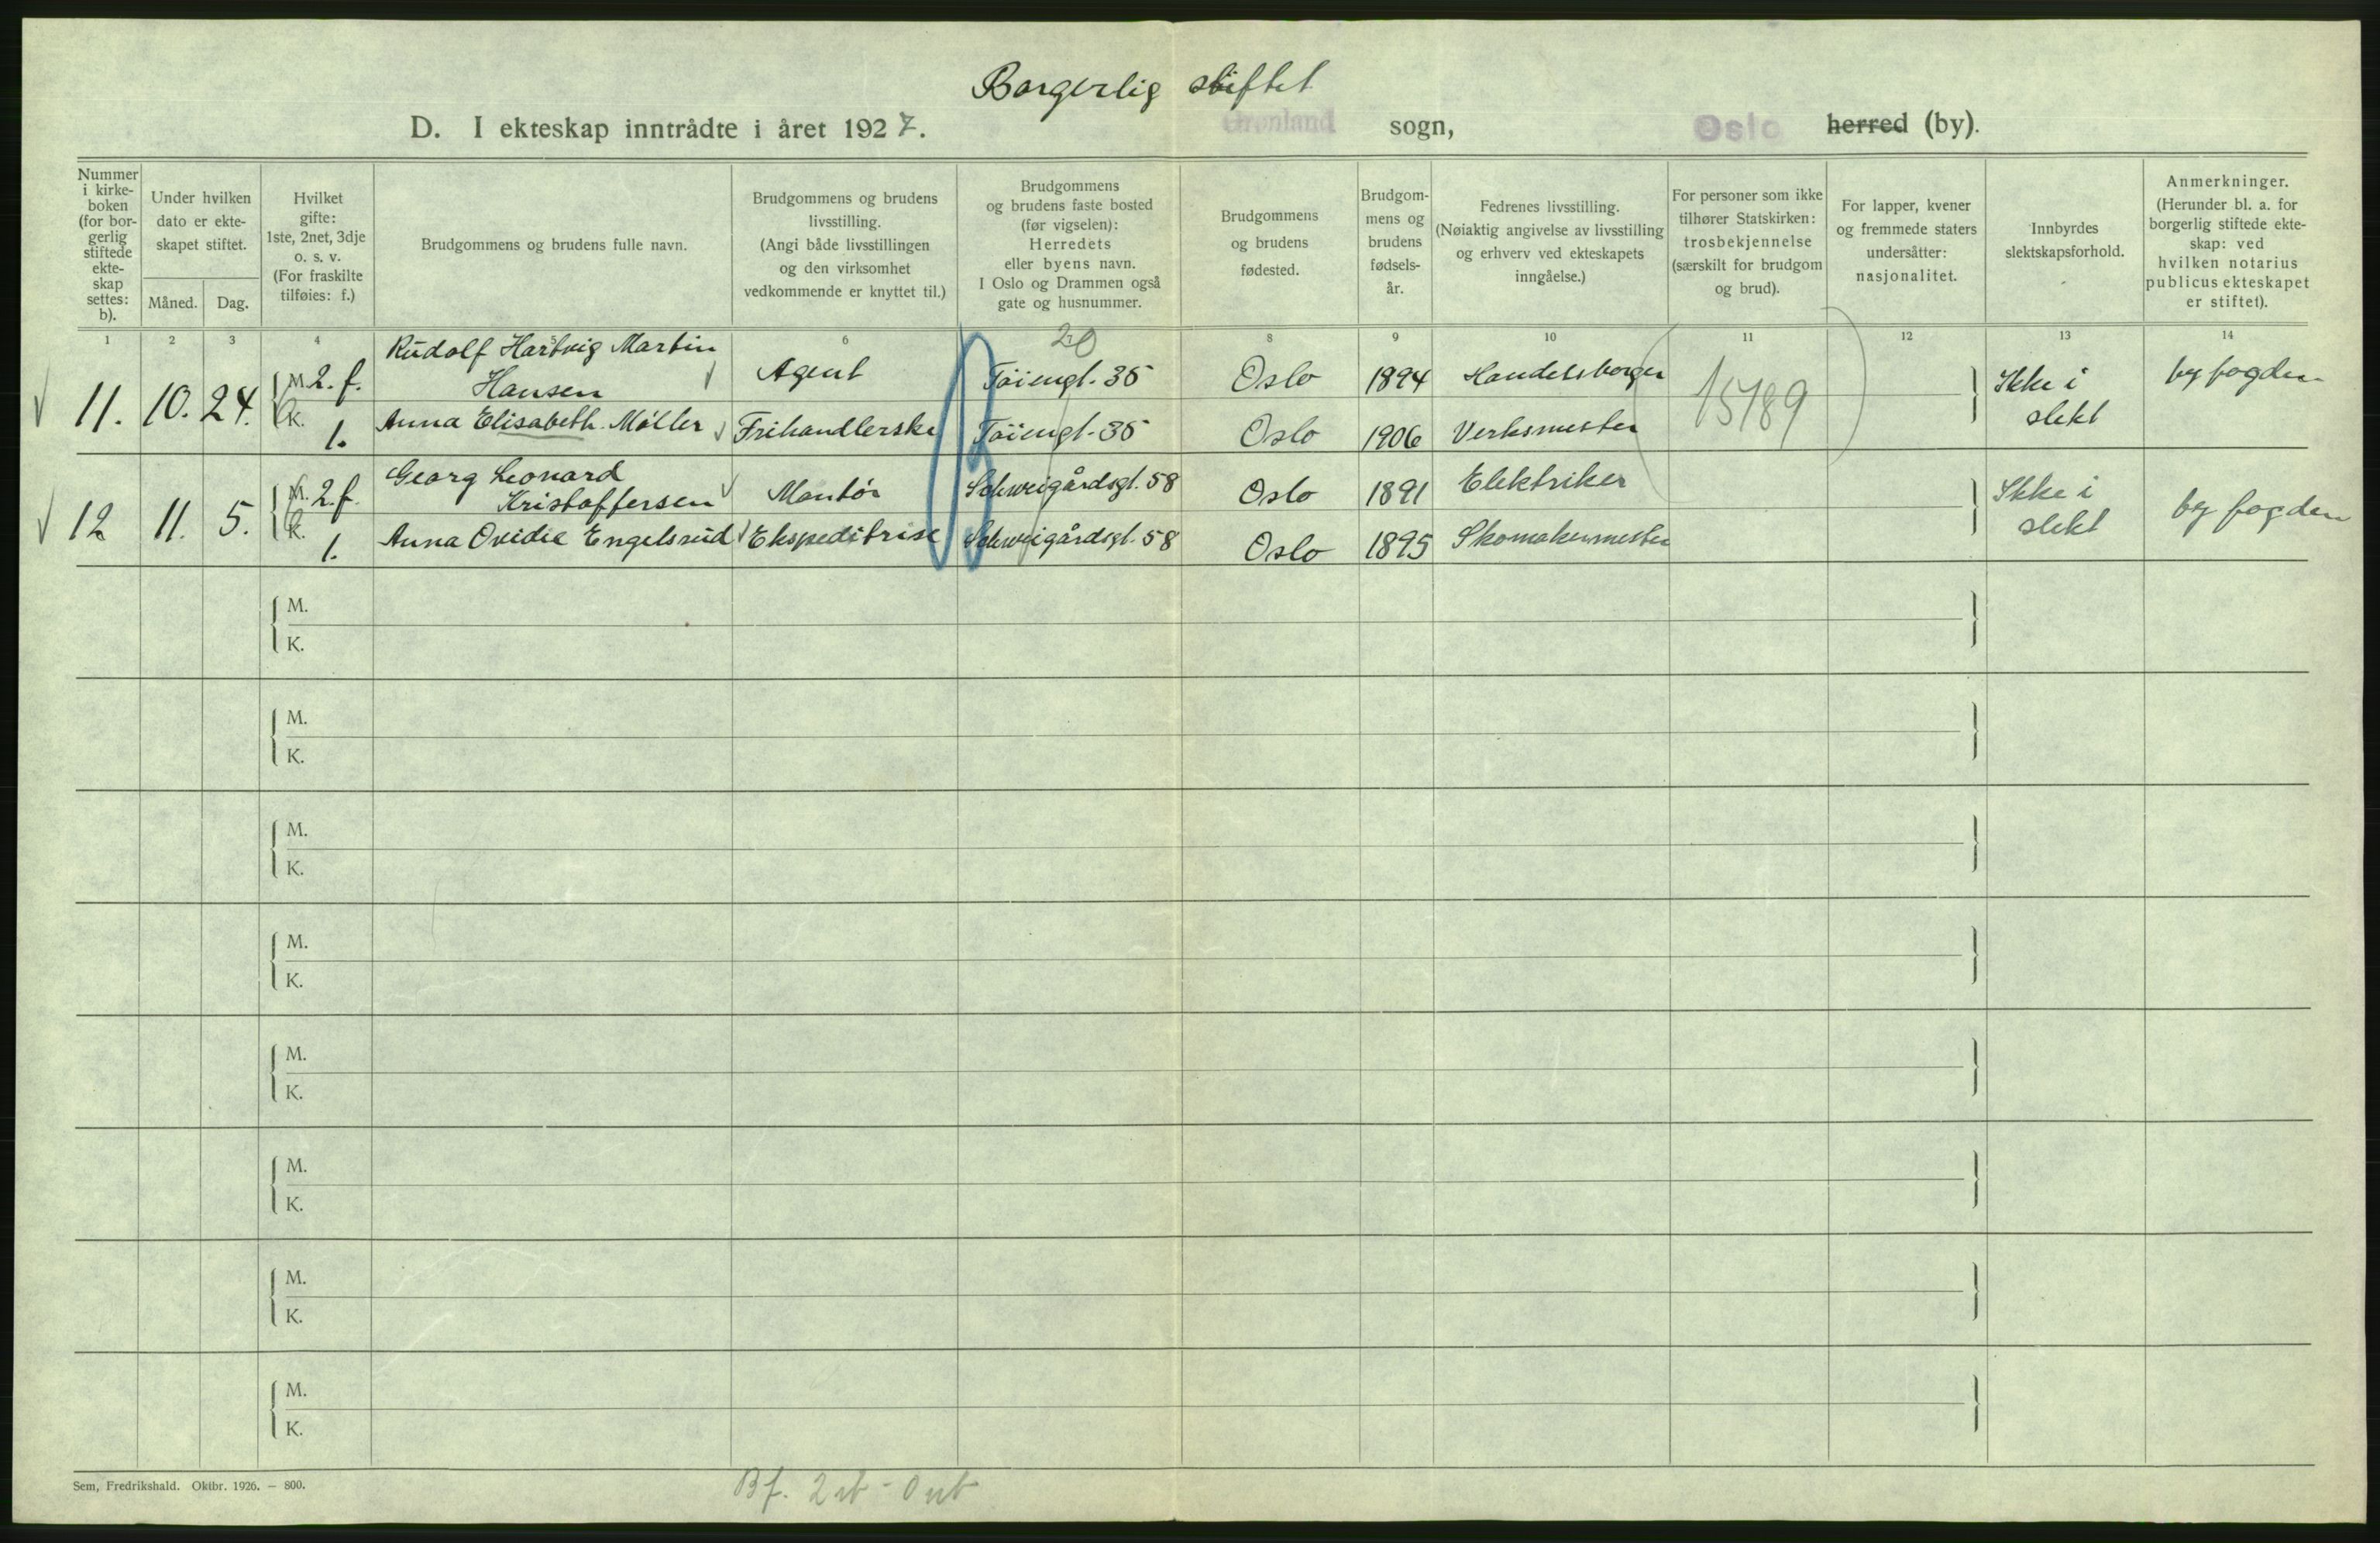 Borgerlig stiftet
D. I ekteskap inntrådte i året 1927. Grønland sogn, Oslo herred (by).
Nummer i kirke-boken (for bor-gerlig stiftede ekte-skap settes: b).
Under hvilken dato er ekte-skapet stiftet.
Måned. Dag.
Hvilket gifte: 1ste, 2net, 3dje o. s. v. (For fraskilte tilføies: f.)
Brudgommens og brudens fulle navn.
Brudgommens og brudens livsstilling. (Angi både livsstillingen og den virksomhet vedkommende er knyttet til.)
Brudgommens og brudens faste bosted (før vigselen): Herredets eller byens navn. I Oslo og Drammen også gate og husnummer.
Brudgommens og brudens fødested.
Brudgom-mens og brudens fødsels-år.
Fedrenes livsstilling. (Nøiaktig angivelse av livsstilling og erhverv ved ekteskapets inngåelse.)
For personer som ikke tilhører Statskirken: trosbekjennelse (særskilt for brudgom og brud).
For lapper, kvener og fremmede staters undersåtter: nasjonalitet.
Innbyrdes slektskapsforhold.
Anmerkninger. (Herunder bl. a. for borgerlig stiftede ekte-skap: ved hvilken notarius publicus ekteskapet er stiftet).
1 2 3 4 5 6 8 9 10 11 12 13 14
20
11. 10. 24. M. 2. f. Rudolf Hartvig Martin Hansen Agent Töiengt. 35 Oslo 1894 Handelsborger 15789 Ikke i slekt byfogden
K. 1. Anna Elisabeth Möller Frihandlerske Töiengt. 35 Oslo 1906 Verksmester
12 11. 5. M. 2. f. Georg Leonard Kristoffersen Montör Schweigårdsgt. 58 Oslo 1891 Elektriker Ikke i slekt byfogden
K. 1. Anna Ovidie Engelsrud Ekspeditrise Schweigårdsgt. 58 Oslo 1895 Skomakermester
M.
K.
M.
K.
M.
K.
M.
K.
M.
K.
M.
K.
M.
K.
M.
K.
Sem, Fredrikshald. Oktbr. 1926. — 800.
Bf. 2 ub - 0 ub